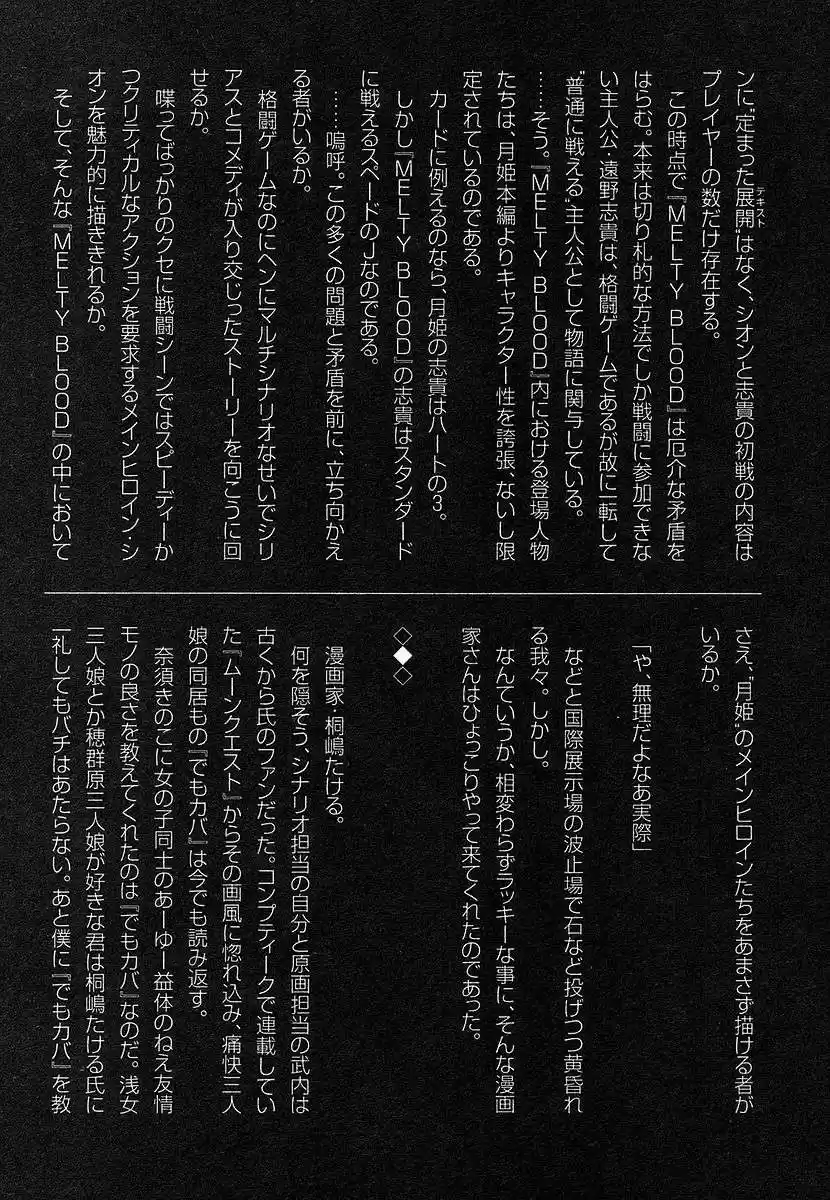 ンに“定まった展開”はなく、シオンと志貴の初戦の内容は
テキスト
プレイヤーの数だけ存在する。
この時点で『MELTY BLOOD』は厄介な矛盾を
はらむ。本来は切り札的な方法でしか戦闘に参加できな
い主人公・遠野志貴は、格闘ゲームであるが故に一転して
“普通に戦える”主人公として物語に関与している。
……そう。『MELTY BLOOD』内における登場人物
たちは、月姫本編よりキャラクター性を誇張、ないし限
定されているのである。
カードに例えるのなら、月姫の志貴はハートの3。
しかし『MELTY BLOOD』の志貴はスタンダード
に戦えるスペードのJなのである。
……嗚呼。この多くの問題と矛盾を前に、立ち向かえ
る者がいるか。
格闘ゲームなのにヘンにマルチシナリオなせいでシリ
アスとコメディが入り交じったストーリーを向こうに回
せるか。
喋ってばっかりのクセに戦闘シーンではスピーディーか
つクリティカルなアクションを要求するメインヒロイン・シ
オンを魅力的に描ききれるか。
そして、そんな『MELTY BLOOD』の中において
さえ、“月姫”のメインヒロインたちをあまさず描ける者が
いるか。
「や、無理だよなあ実際」
などと国際展示場の波止場で石など投げつつ黄昏れ
る我々。しかし。
なんていうか、相変わらずラッキーな事に、そんな漫画
家さんはひょっこりやって来てくれたのであった。
◇◆◇
漫画家・桐嶋たける。
何を隠そう、シナリオ担当の自分と原画担当の武内は
古くから氏のファンだった。コンプティークで連載してい
た『ムーンクエスト』からその画風に惚れ込み、痛快三人
娘の同居もの『でもカバ』は今でも読み返す。
奈須きのこに女の子同士のあーゆー益体のねえ友情
モノの良さを教えてくれたのは『でもカバ』なのだ。浅女
三人娘とか穂群原三人娘が好きな君は桐嶋たける氏に
一礼してもバチはあたらない。あと僕に『でもカバ』を教